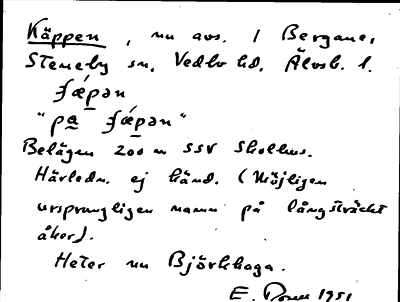 Käppen, nu avs. i Bergane,
Steneby sn, Vedbo hd, Älvsb. l.
"på
Belägen 200 m SSV Skolhus.
Härledn. ej känd. (Möjligen
ursprungligen namn på långsträckt
åker).
Heter nu Björkhaga.
E. 1951